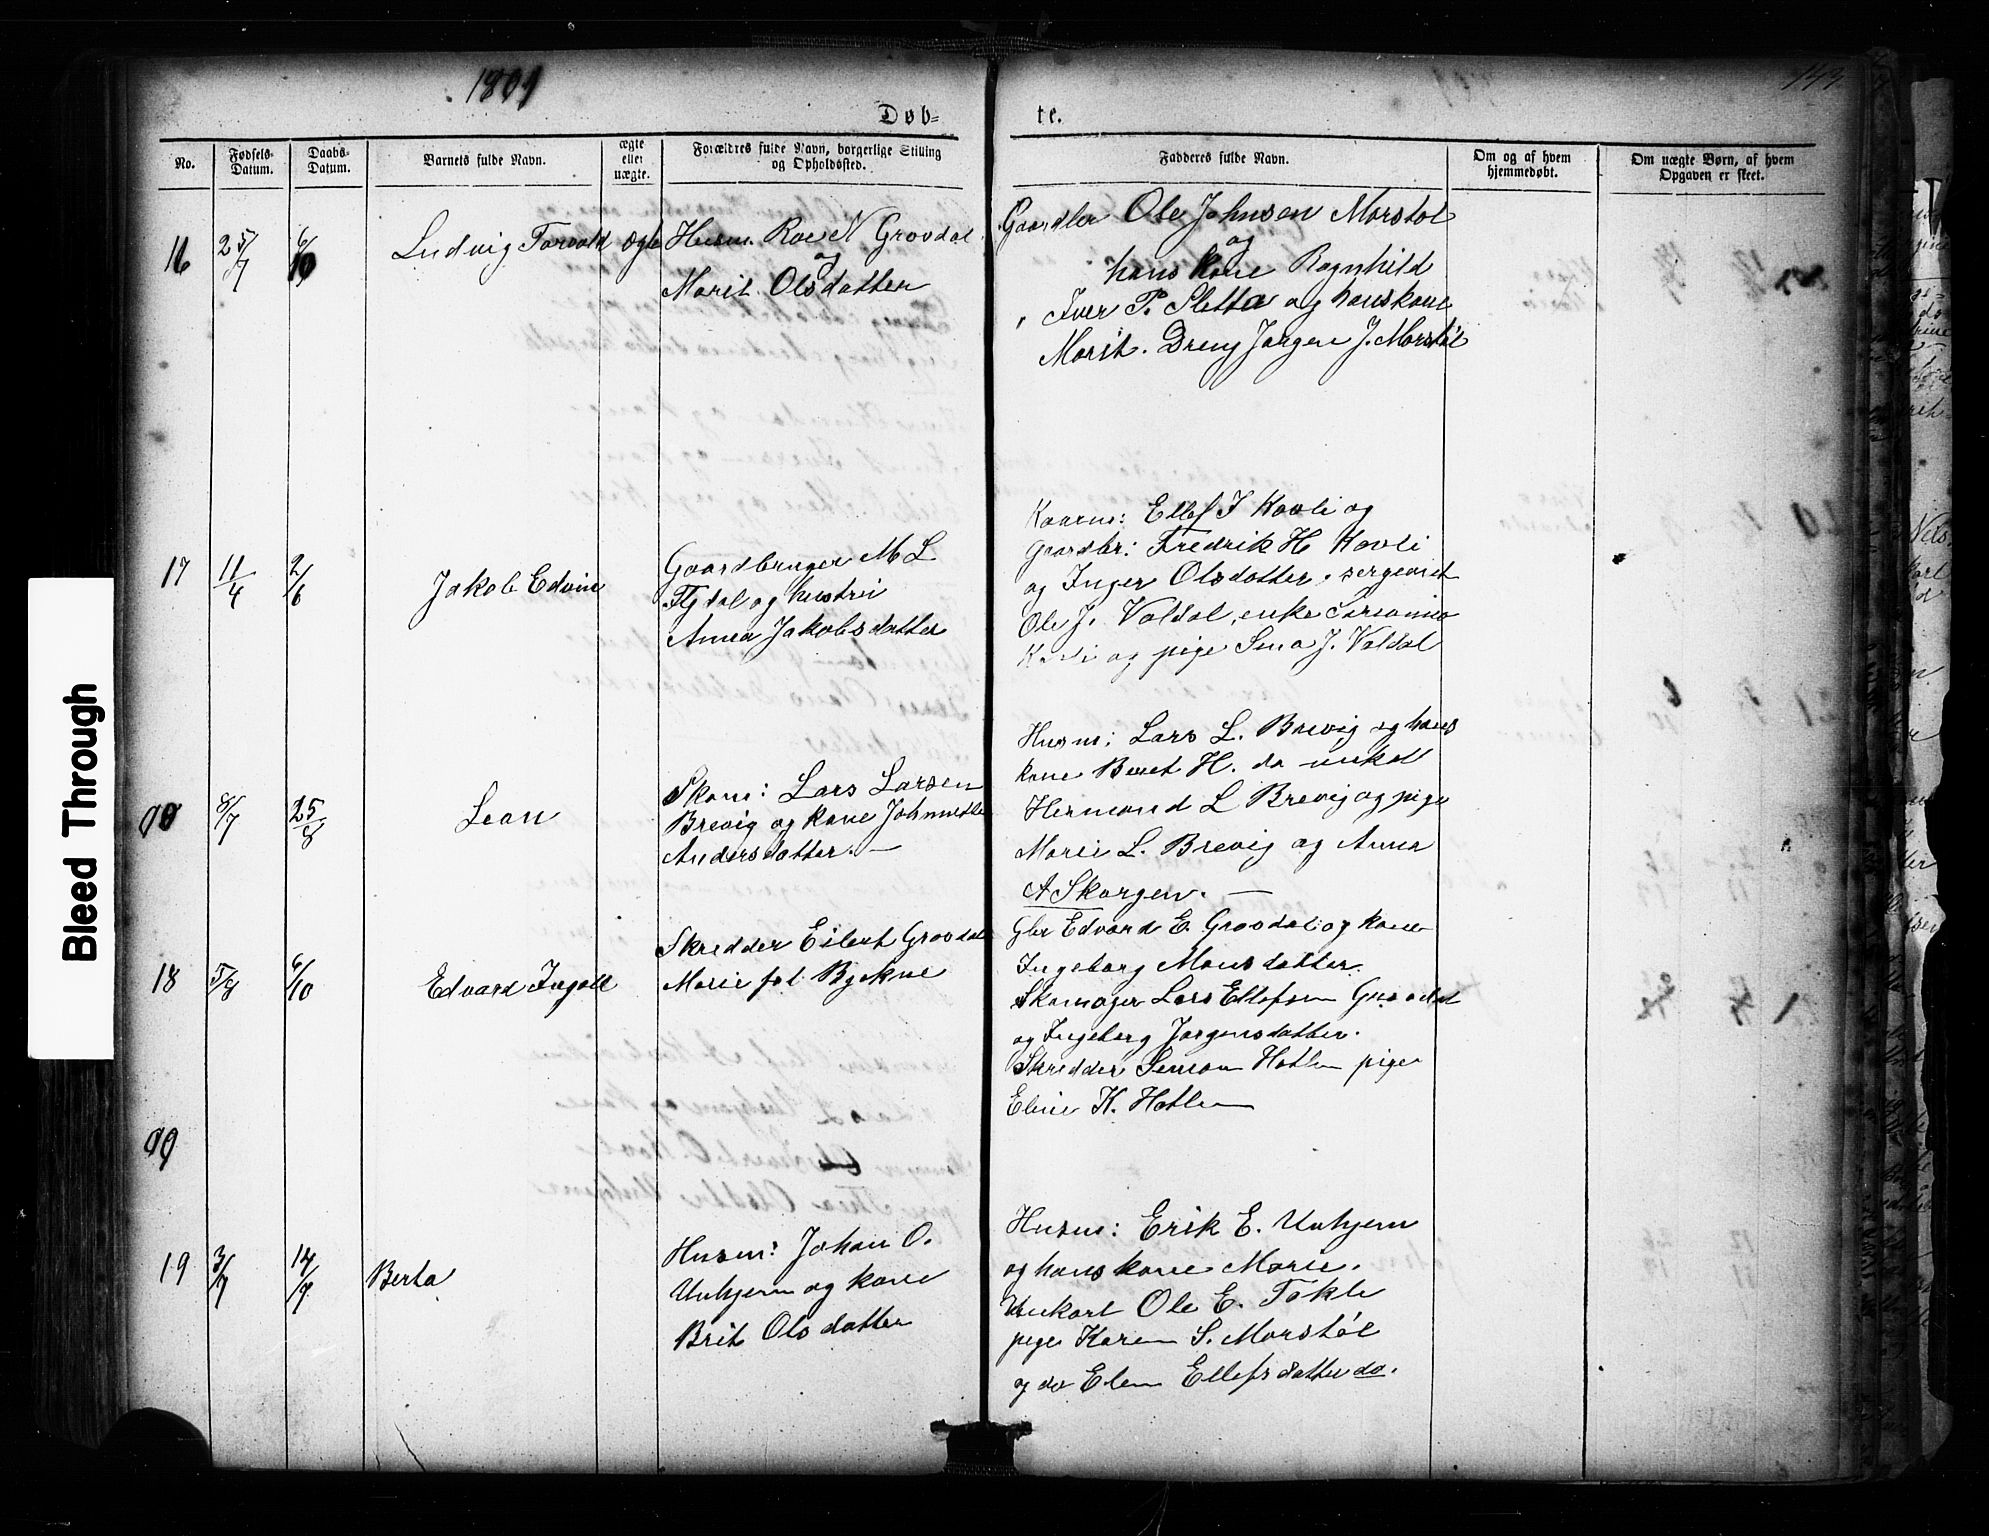 1889
143
Døb-
te.
No.
Fødsels-Datum.
Daabs-Datum.
Barnets fulde Navn.
ægte eller uægte.
Forældres fulde Navn, borgerlige Stilling og Opholdssted.
Fadderes fulde Navn.
Om og af hvem hjemmedøbt.
Om uægte Børn, af hvem Opgaven er skeet.
16
25/7
6/10
Ludvig Torvald
ægte
Husm. Roe N Grovdal
og
Marit Olsdatter
Gaardbr Ole Johnsen Morstøl
og
hans kone Ragnhild
Iver P. Sletta og hans kone
Marit. Dreng Jørgen J. Morstøl
17
11/4
2/6
Jakob Edvin
Gaardbruger M L
Flydal og hustru
Anna Jakobsdatter
Kaarm: Ellef I Hovli og
Gaardbr: Fredrik H Hovli
og Inger Olsdatter, sergeant
Ole J. Valdal, enke
og pige Sina J. Valdal
8/7
25/8
Lean
Skom: Lars Larsen
Brevig og kone Johannette
Andersdatter. —
Husm: Lars L. Brevig og hans
kone Beret H. do unkal
Hermand L Brevig og pige
Marie L. Brevig og Anna
A Skorgen. —
18
5/8
6/10
Edvard Ingolf
Skredder Eilert Grovdal
Marie fød Bjekne
Gbr Edvard E. Grovdal og kone
Ingeborg Monsdatter
Skomager Lars Ellefsen Grovdal
og Ingeborg Jørgensdatter.
Skredder Simon Hatlen pige
Eline K. Hatlen
19
3/7
14/9
Berta
Husm: Johan O.
Unhjem og kone
Brit Olsdatter
Husm: Erik E. Unhjem
og hans kone Marie.
Unkarl Ole E. Tokle
pige Karen S. Morstøl
og do Elen Ellefsdatter do.
Bleed Through